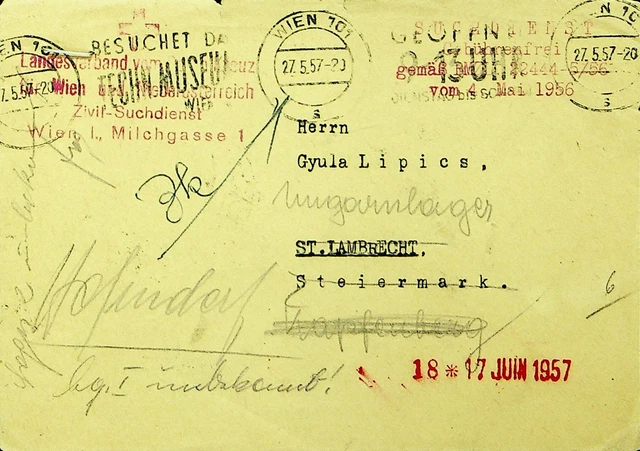 WIEN 101
27.5.57-20
BESUCHET DAS
TECHN. MUSEUM
WIEN
WIEN 101
27.5.57-20
s
GEÖFFNET
9-13 UHR
DIENSTAG BIS
WIEN 101
27.5.57-20
s
Landesverband vom Roten Kreuz
für Wien und Niederösterreich
Zivil-Suchdienst
Wien I., Milchgasse 1
SUCHDIENST
Gebührenfrei
gemäß
vom 4. Mai 1956
Herrn
Gyula Lipics,
Ungarnlager
ST.LAMBRECHT,
Steiermark.
Kapfenberg
6
unbekannt!
18 * 17 JUNI 1957